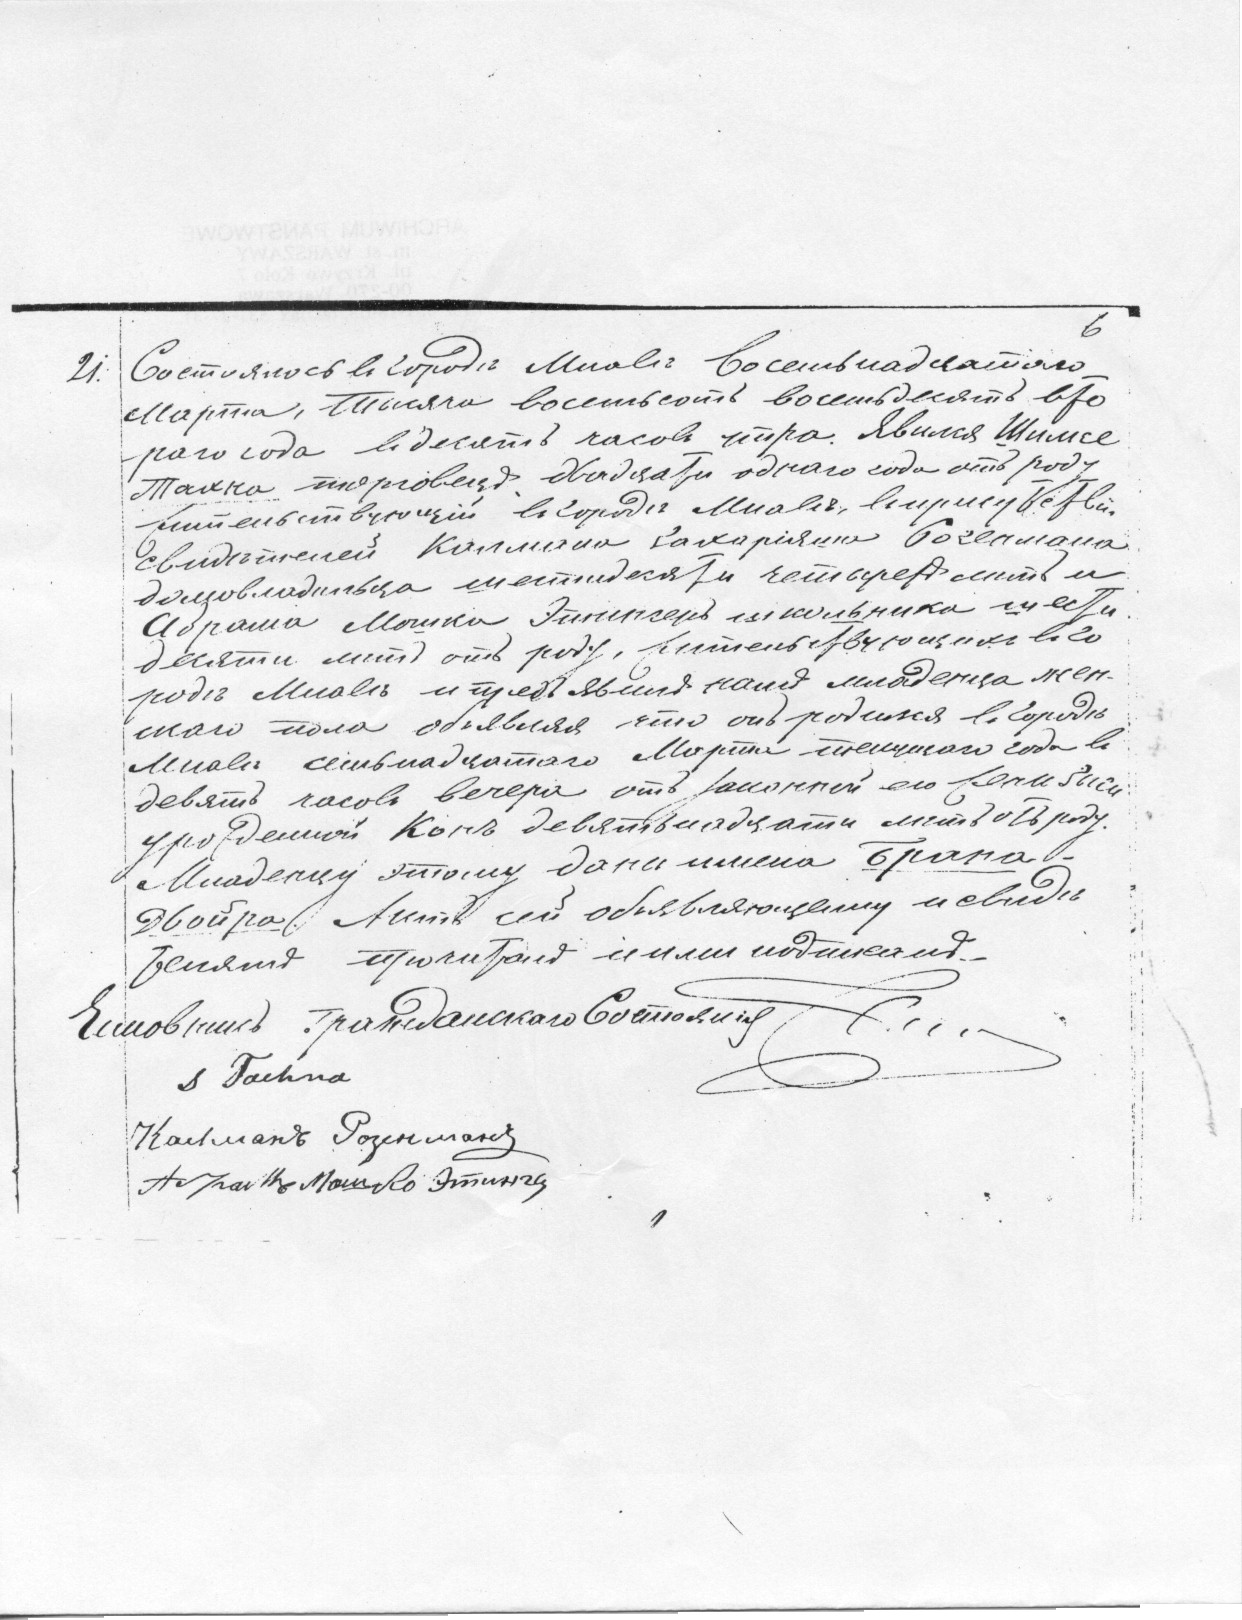 6
21. Состоялось въ городѣ Млавѣ Восемьнадцатаго
Марта, Тысяча восемьсотъ восемьдесятъ вто
раго года въ десять часовъ утра. Явился Шимсе
Тахна торговецъ двадцати однаго года отъ роду
жительствующій въ городѣ Млавѣ, въ присутствіи
свидѣтелей Калмана Захаріяша Розенмана
домовладѣльца шестидесяти четырехъ лѣтъ и
Абрама Мошка Этингеръ школьника шести
десяти лѣтъ отъ роду, жительствующихъ въ го
родѣ Млавѣ и предъявилъ намъ младенца жен-
скаго пола объявляя что онъ родился въ городѣ
Млавѣ семьнадцатаго Марта текущаго года въ
девять часовъ вечера отъ законной его жены
урожденной Конъ девятьнадцати лѣтъ отъ роду.
Младенцу этому даны имена Брана-
Двойра. Актъ сей объявляющему и свидѣ
телямъ прочитанъ и ими подписанъ.-
Чиновникъ Гражданскаго Состоянія
S Tachna
Калманъ Розенманъ
Абрамъ Мошко Этингеръ
ARCHIWUM PAŃSTWOWE
m. st. WARSZAWY
ul. Krzywe Koło 7